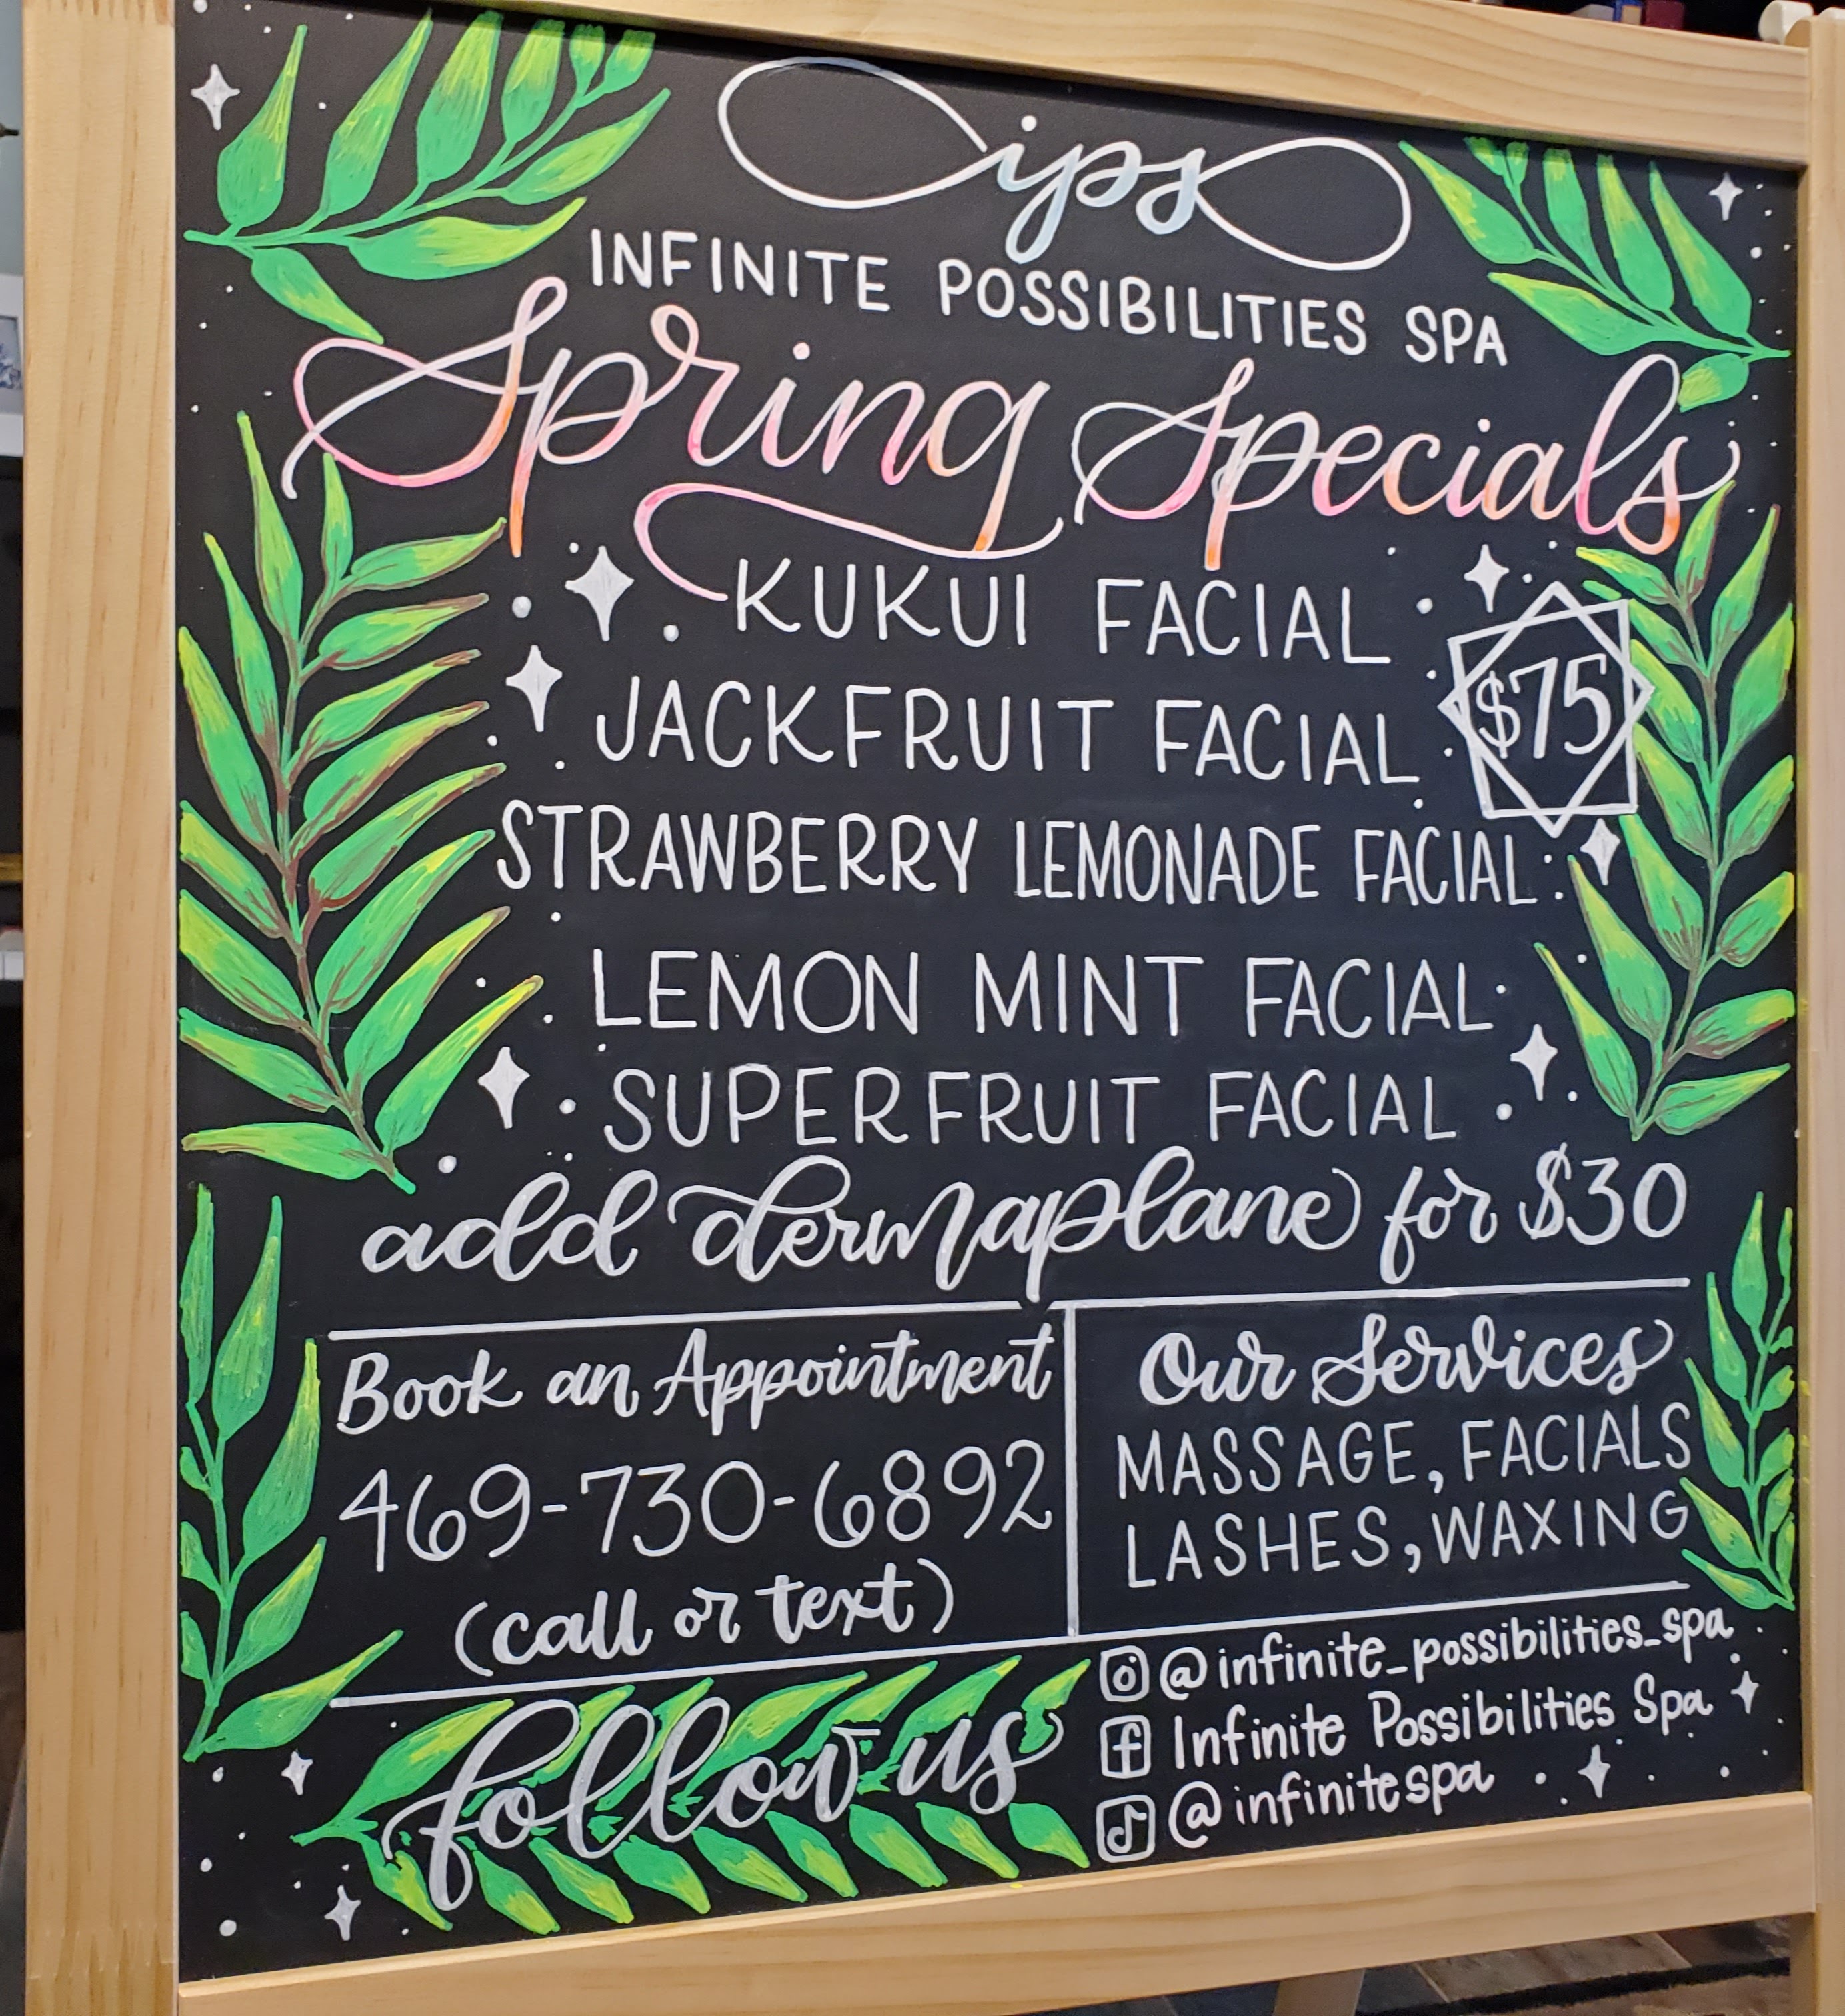 ips
INFINITE POSSIBILITIES SPA
Spring Specials
KUKUI FACIAL
JACKFRUIT FACIAL
$75
STRAWBERRY LEMONADE FACIAL
LEMON MINT FACIAL
SUPERFRUIT FACIAL
add dermaplane for $30
Book an Appointment
469-730-6892
(call or text)
Our Services
MASSAGE, FACIALS
LASHES, WAXING
follow us
@infinite_possibilities_spa
Infinite Possibilities Spa
@infinitespa